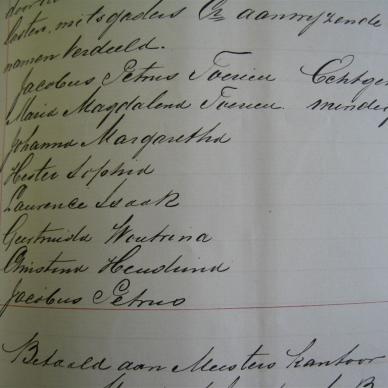 lasten, mitsgaders aanwijzende
namen verdeeld.
Jacobus Petrus Toerien Echtgen
Maria Magdalena Toerien minderj
Johanna Margaretha
Hester Sophia
Laurence Isaak
Geertruida Woutrina
Christina Hendrina
Jacobus Petrus
Betaald aan Meesters kantoor